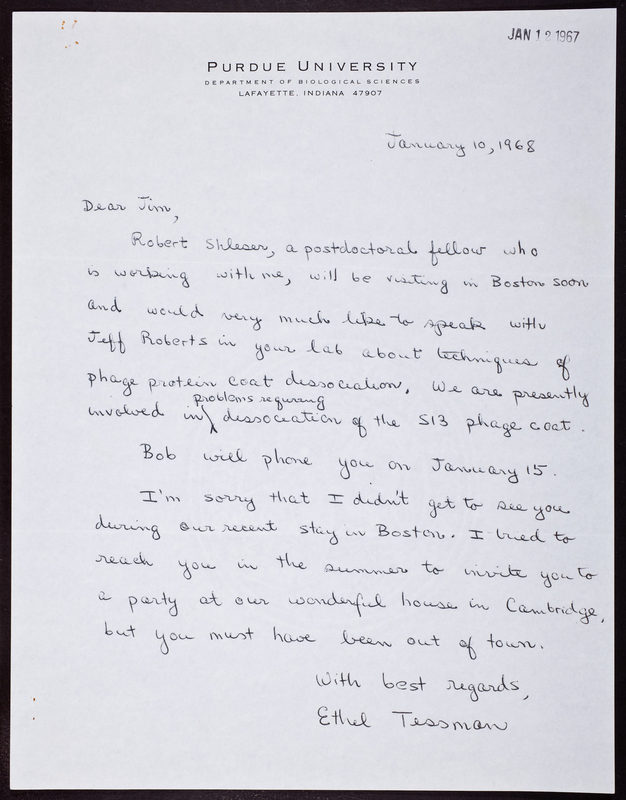 JAN 12 1967
PURDUE UNIVERSITY
DEPARTMENT OF BIOLOGICAL SCIENCES
LAFAYETTE, INDIANA 47907
January 10, 1968
Dear Jim,
Robert Shleser, a postdoctoral fellow who
is working with me, will be visiting in Boston soon
and would very much like to speak with
Jeff Roberts in your lab about techniques of
phage protein coat dissociation. We are presently
problems requiring
involved in dissociation of the S13 phage coat.
Bob will phone you on January 15.
I'm sorry that I didn't get to see you
during our recent stay in Boston. I tried to
reach you in the summer to invite you to
a party at our wonderful house in Cambridge,
but you must have been out of town.
With best regards,
Ethel Tessman